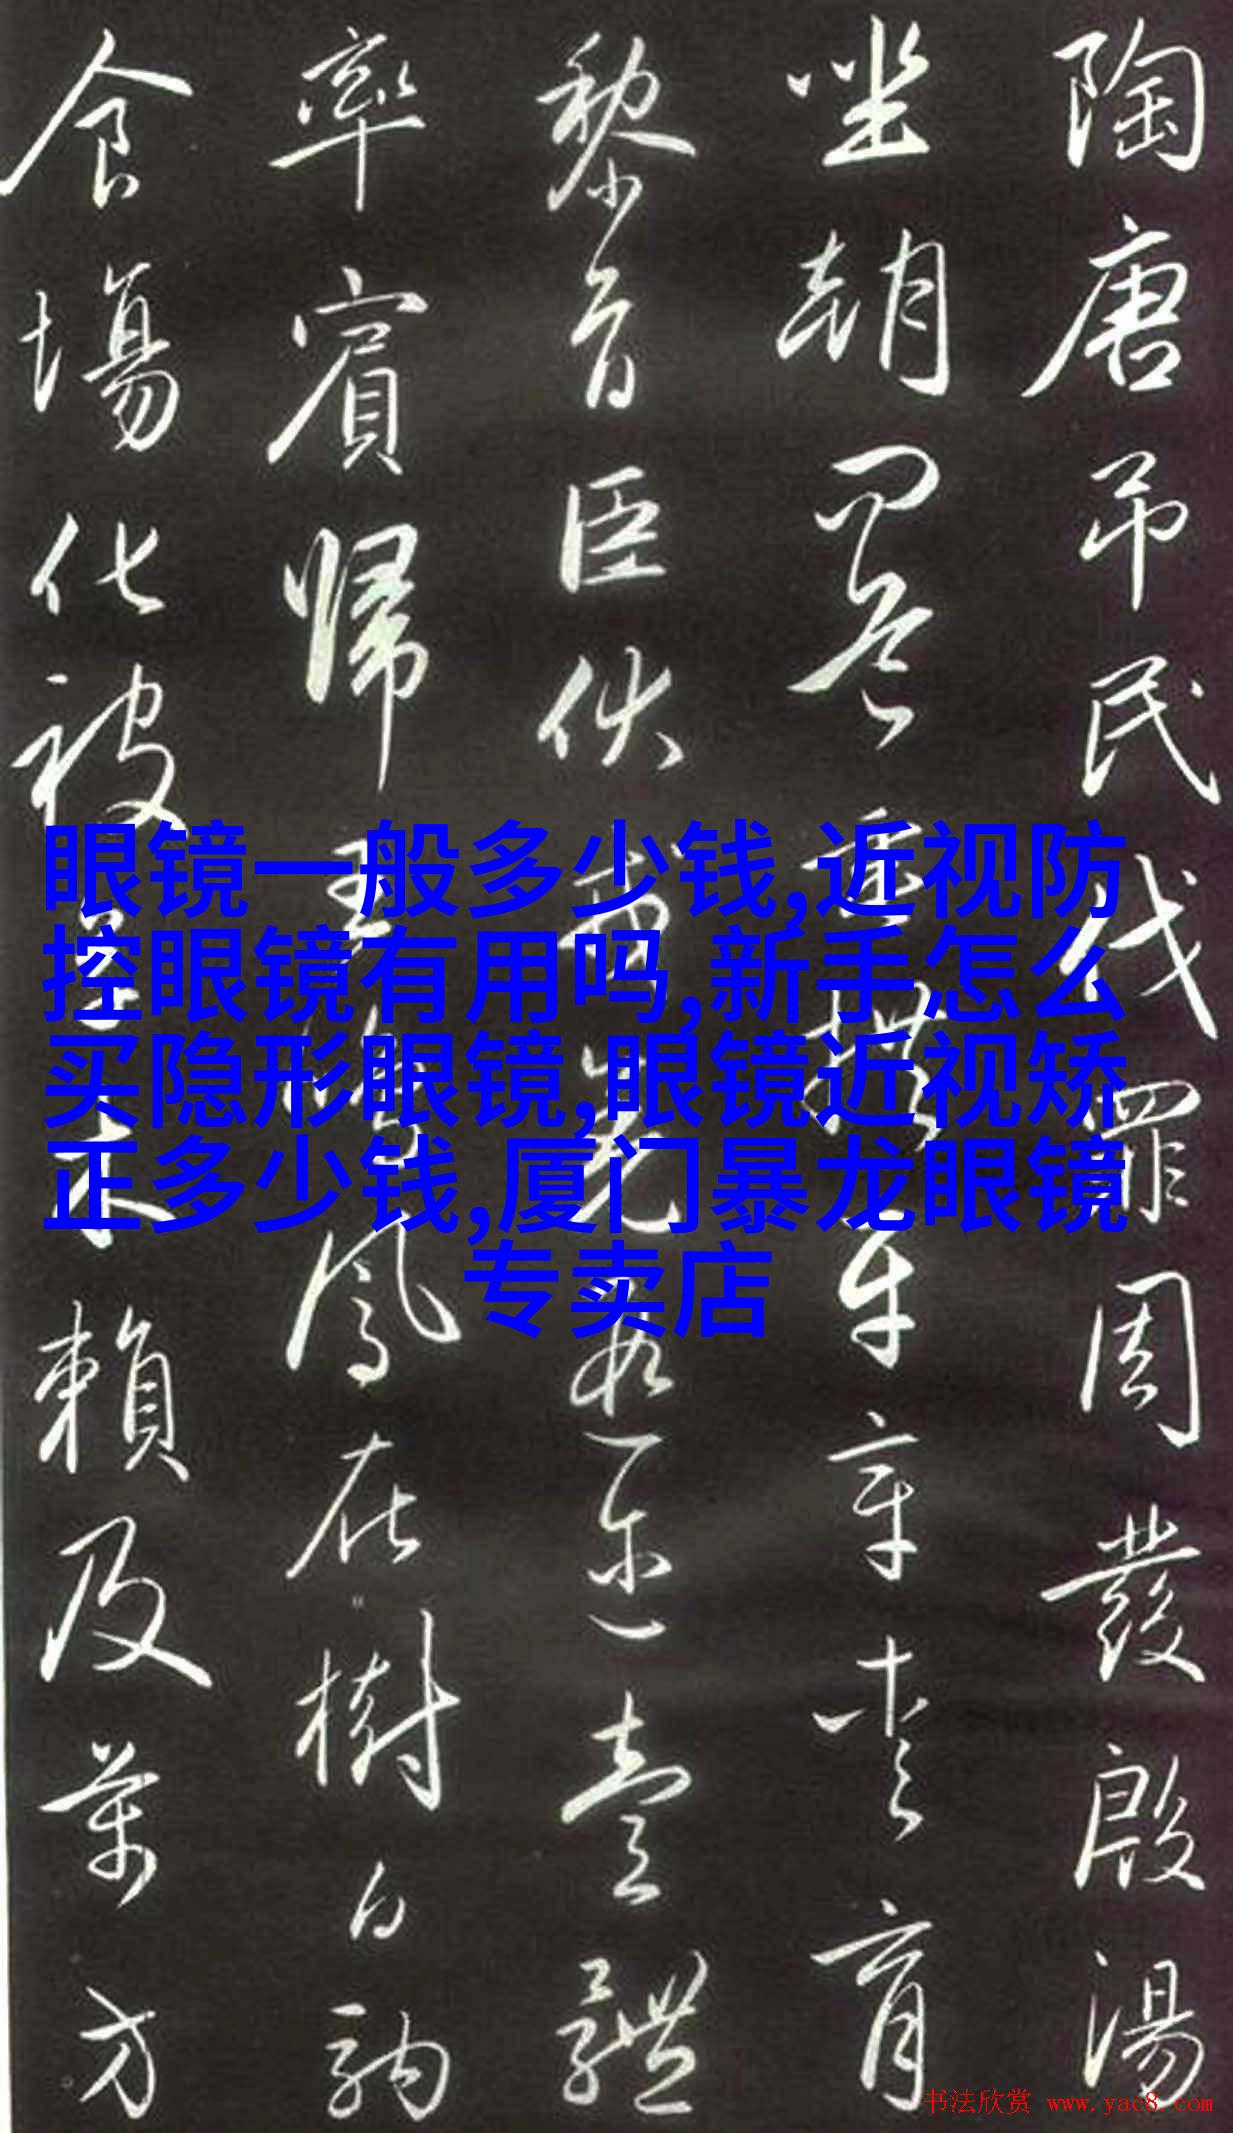 陶唐吊民伐罪周發殷湯
坐朝問道垂拱平章愛育
黎首臣伏戎羌遐迩壹體
率賓歸王鳴鳳在樹白駒
食場化被草木賴及萬方
眼镜一般多少钱,近视防
控眼镜有用吗,新手怎么
买隐形眼镜,眼镜近视矫
正多少钱,厦门暴龙眼镜
专卖店
书法欣赏 www.yac8.com